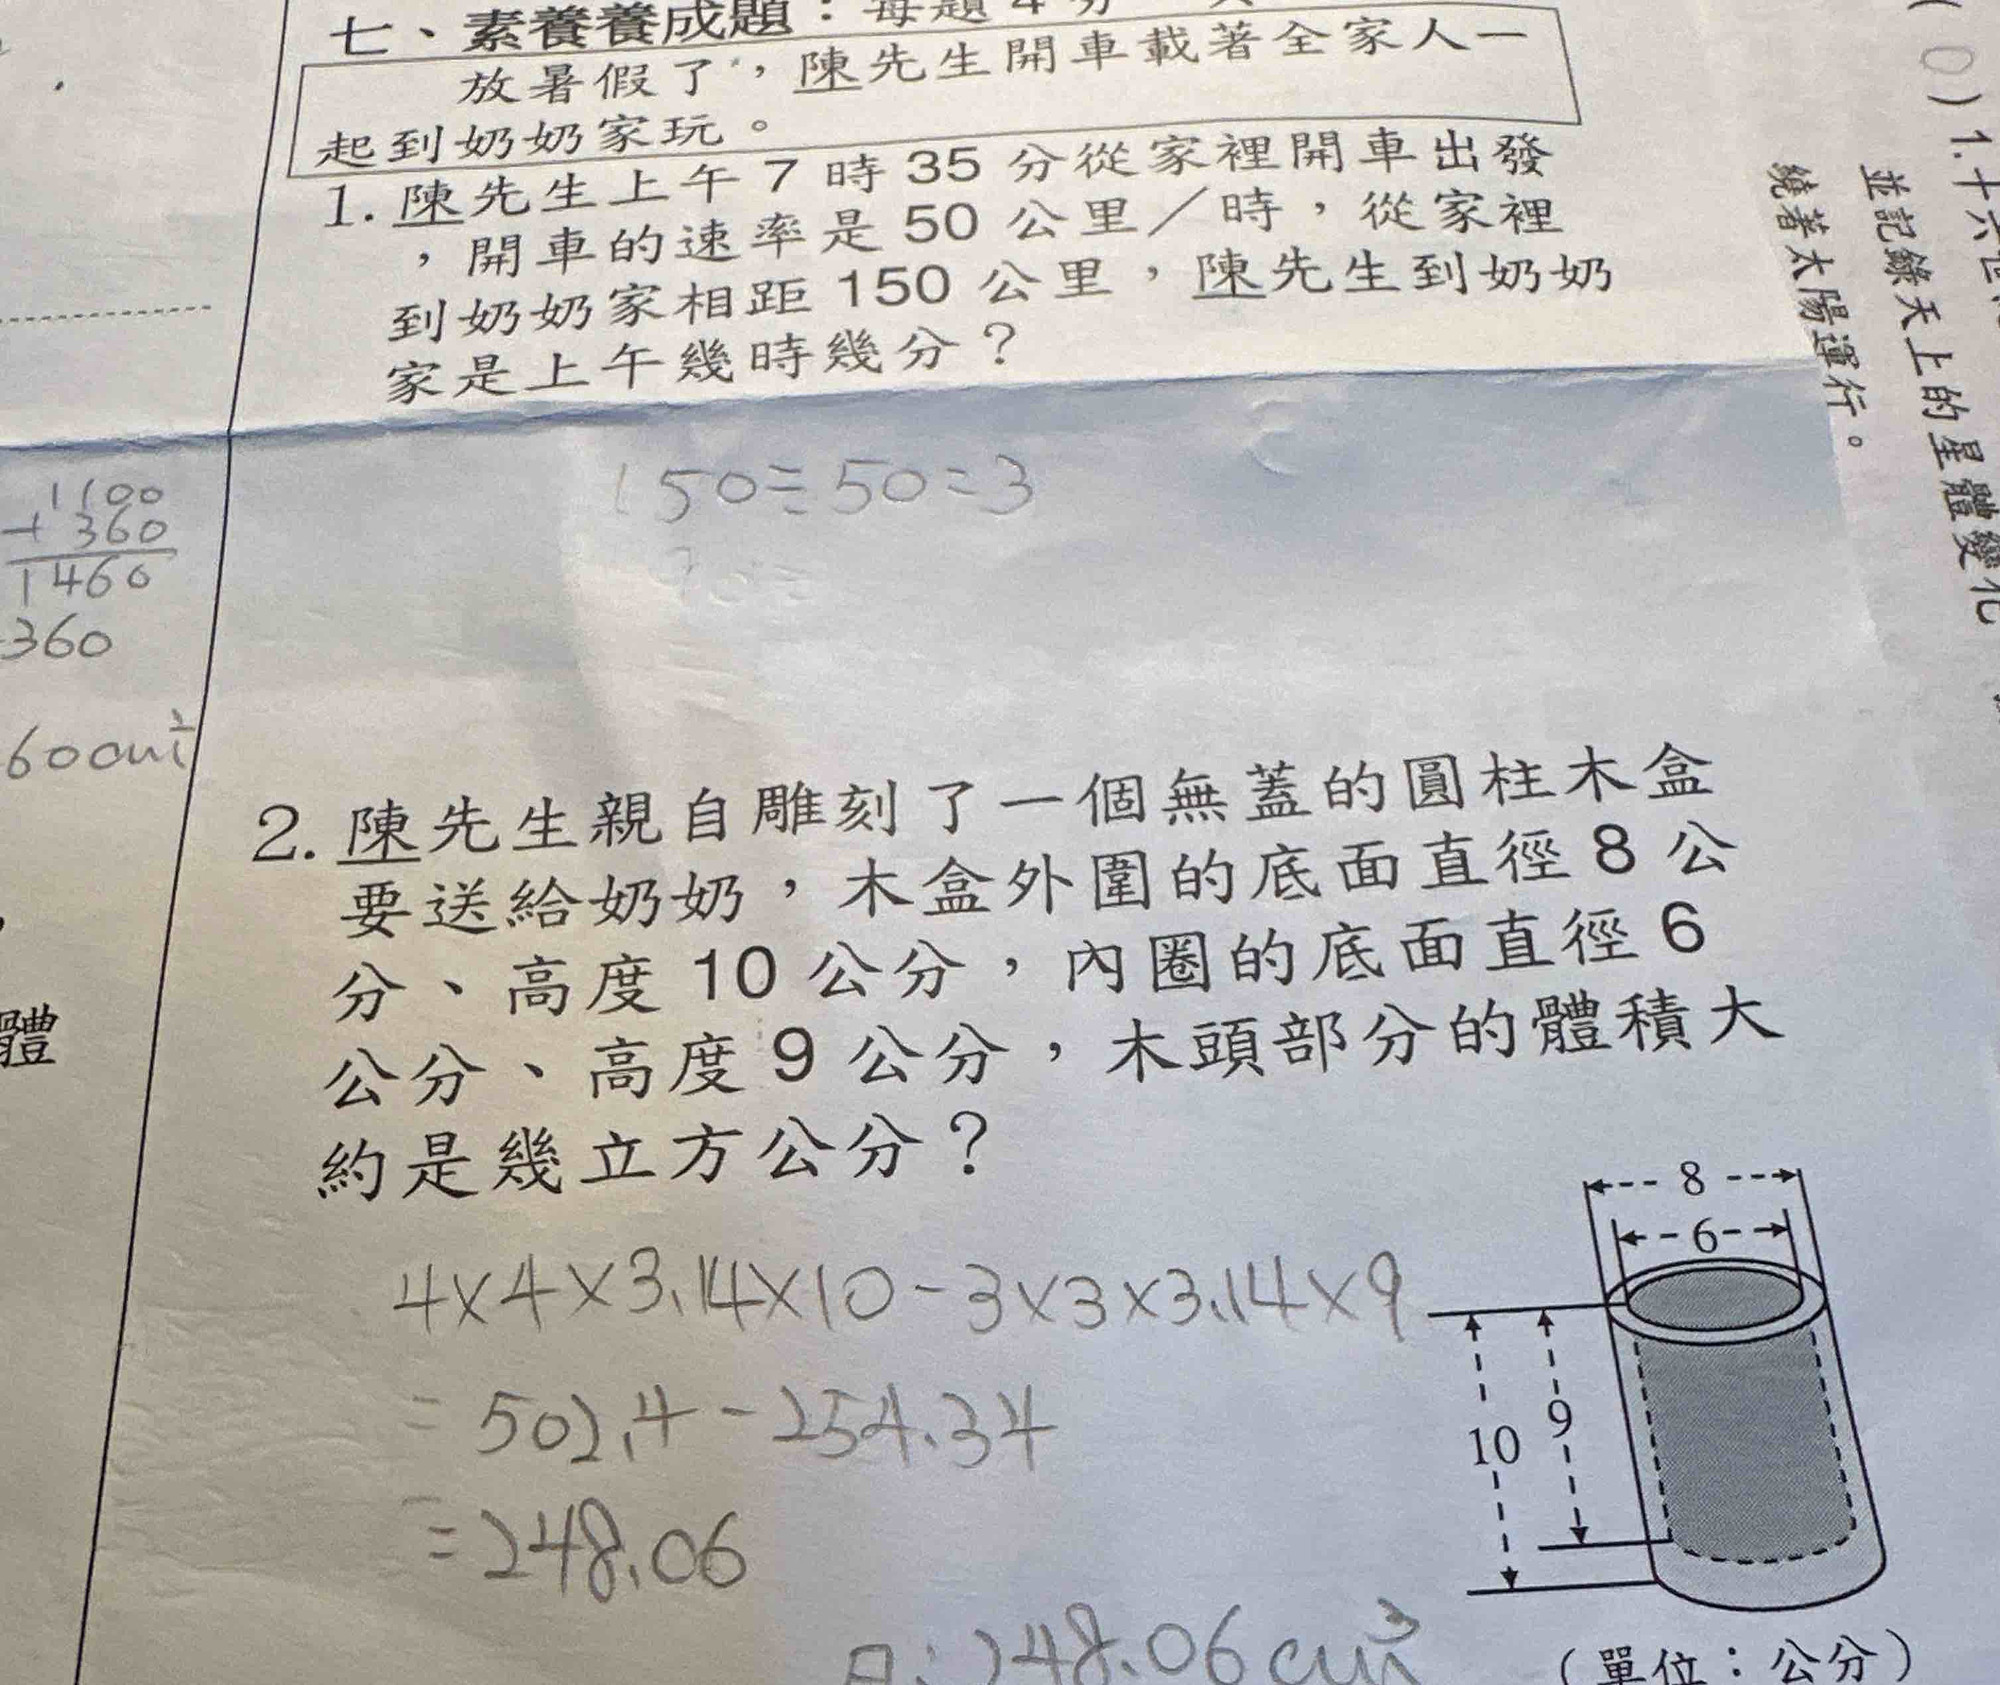 七、素養養成題：每題4分
放暑假了，陳先生開車載著全家人一
起到奶奶家玩。
1. 陳先生上午7時35分從家裡開車出發
，開車的速率是50公里／時，從家裡
到奶奶家相距150公里，陳先生到奶奶
家是上午幾時幾分？
150÷50=3
1100
+360
1460
360
60cm²
2. 陳先生親自雕刻了一個無蓋的圓柱木盒
要送給奶奶，木盒外圍的底面直徑8公
分、高度10公分，內圈的底面直徑6
公分、高度9公分，木頭部分的體積大
約是幾立方公分？
4×4×3.14×10-3×3×3.14×9
=502.4-254.34
=248.06
248.06cm³
8
6
9
10
（單位：公分）
體
(0)1.十六世
並記錄天上的星體變化
繞著太陽運行。